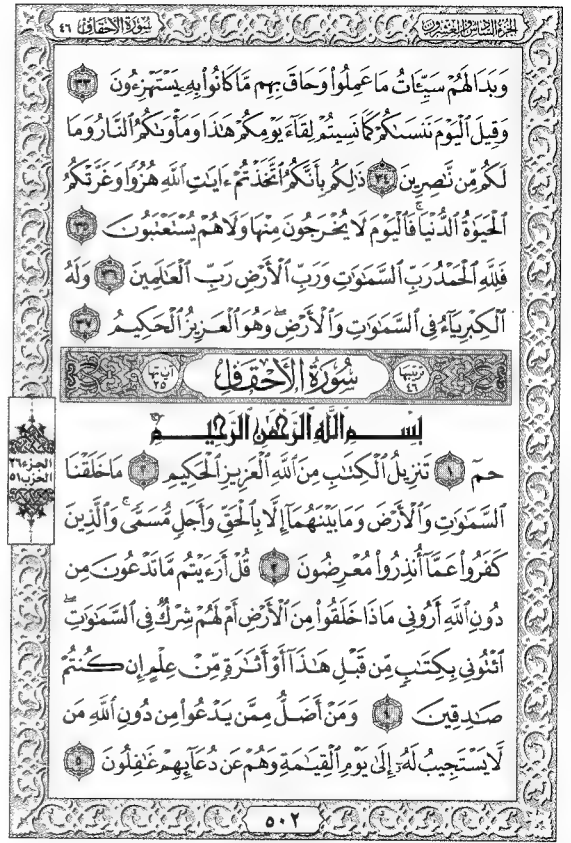 الجزء السادس والعشرون
سورة الأحقاف ٤٦
وَبَدَا لَهُمْ سَيِّـَٔاتُ مَا عَمِلُوا۟ وَحَاقَ بِهِم مَّا كَانُوا۟ بِهِۦ يَسْتَهْزِءُونَ ٣٣
وَقِيلَ ٱلْيَوْمَ نَنسَىٰكُمْ كَمَا نَسِيتُمْ لِقَآءَ يَوْمِكُمْ هَٰذَا وَمَأْوَىٰكُمُ ٱلنَّارُ وَمَا
لَكُم مِّن نَّٰصِرِينَ ٣٤ ذَٰلِكُم بِأَنَّكُمُ ٱتَّخَذْتُمْ ءَايَٰتِ ٱللَّهِ هُزُوًا وَغَرَّتْكُمُ
ٱلْحَيَوٰةُ ٱلدُّنْيَا ۚ فَٱلْيَوْمَ لَا يُخْرَجُونَ مِنْهَا وَلَا هُمْ يُسْتَعْتَبُونَ ٣٥
فَلِلَّهِ ٱلْحَمْدُ رَبِّ ٱلسَّمَٰوَٰتِ وَرَبِّ ٱلْأَرْضِ رَبِّ ٱلْعَٰلَمِينَ ٣٦ وَلَهُ
ٱلْكِبْرِيَآءُ فِى ٱلسَّمَٰوَٰتِ وَٱلْأَرْضِ ۖ وَهُوَ ٱلْعَزِيزُ ٱلْحَكِيمُ ٣٧
ترتيبها ٤٦ سُورَةُ الأَحْقَافِ آياتها ٣٥
بِسْمِ ٱللَّهِ ٱلرَّحْمَٰنِ ٱلرَّحِيمِ
حمٓ ١ تَنزِيلُ ٱلْكِتَٰبِ مِنَ ٱللَّهِ ٱلْعَزِيزِ ٱلْحَكِيمِ ٢ مَا خَلَقْنَا
ٱلسَّمَٰوَٰتِ وَٱلْأَرْضَ وَمَا بَيْنَهُمَآ إِلَّا بِٱلْحَقِّ وَأَجَلٍ مُّسَمًّى ۚ وَٱلَّذِينَ
كَفَرُوا۟ عَمَّآ أُنذِرُوا۟ مُعْرِضُونَ ٣ قُلْ أَرَءَيْتُم مَّا تَدْعُونَ مِن
دُونِ ٱللَّهِ أَرُونِى مَاذَا خَلَقُوا۟ مِنَ ٱلْأَرْضِ أَمْ لَهُمْ شِرْكٌ فِى ٱلسَّمَٰوَٰتِ ۖ
ٱئْتُونِى بِكِتَٰبٍ مِّن قَبْلِ هَٰذَآ أَوْ أَثَٰرَةٍ مِّنْ عِلْمٍ إِن كُنتُمْ
صَٰدِقِينَ ٤ وَمَنْ أَضَلُّ مِمَّن يَدْعُوا۟ مِن دُونِ ٱللَّهِ مَن
لَّا يَسْتَجِيبُ لَهُۥٓ إِلَىٰ يَوْمِ ٱلْقِيَٰمَةِ وَهُمْ عَن دُعَآئِهِمْ غَٰفِلُونَ ٥
الجزء ٢٦
الحزب ٥١
٥٠٢